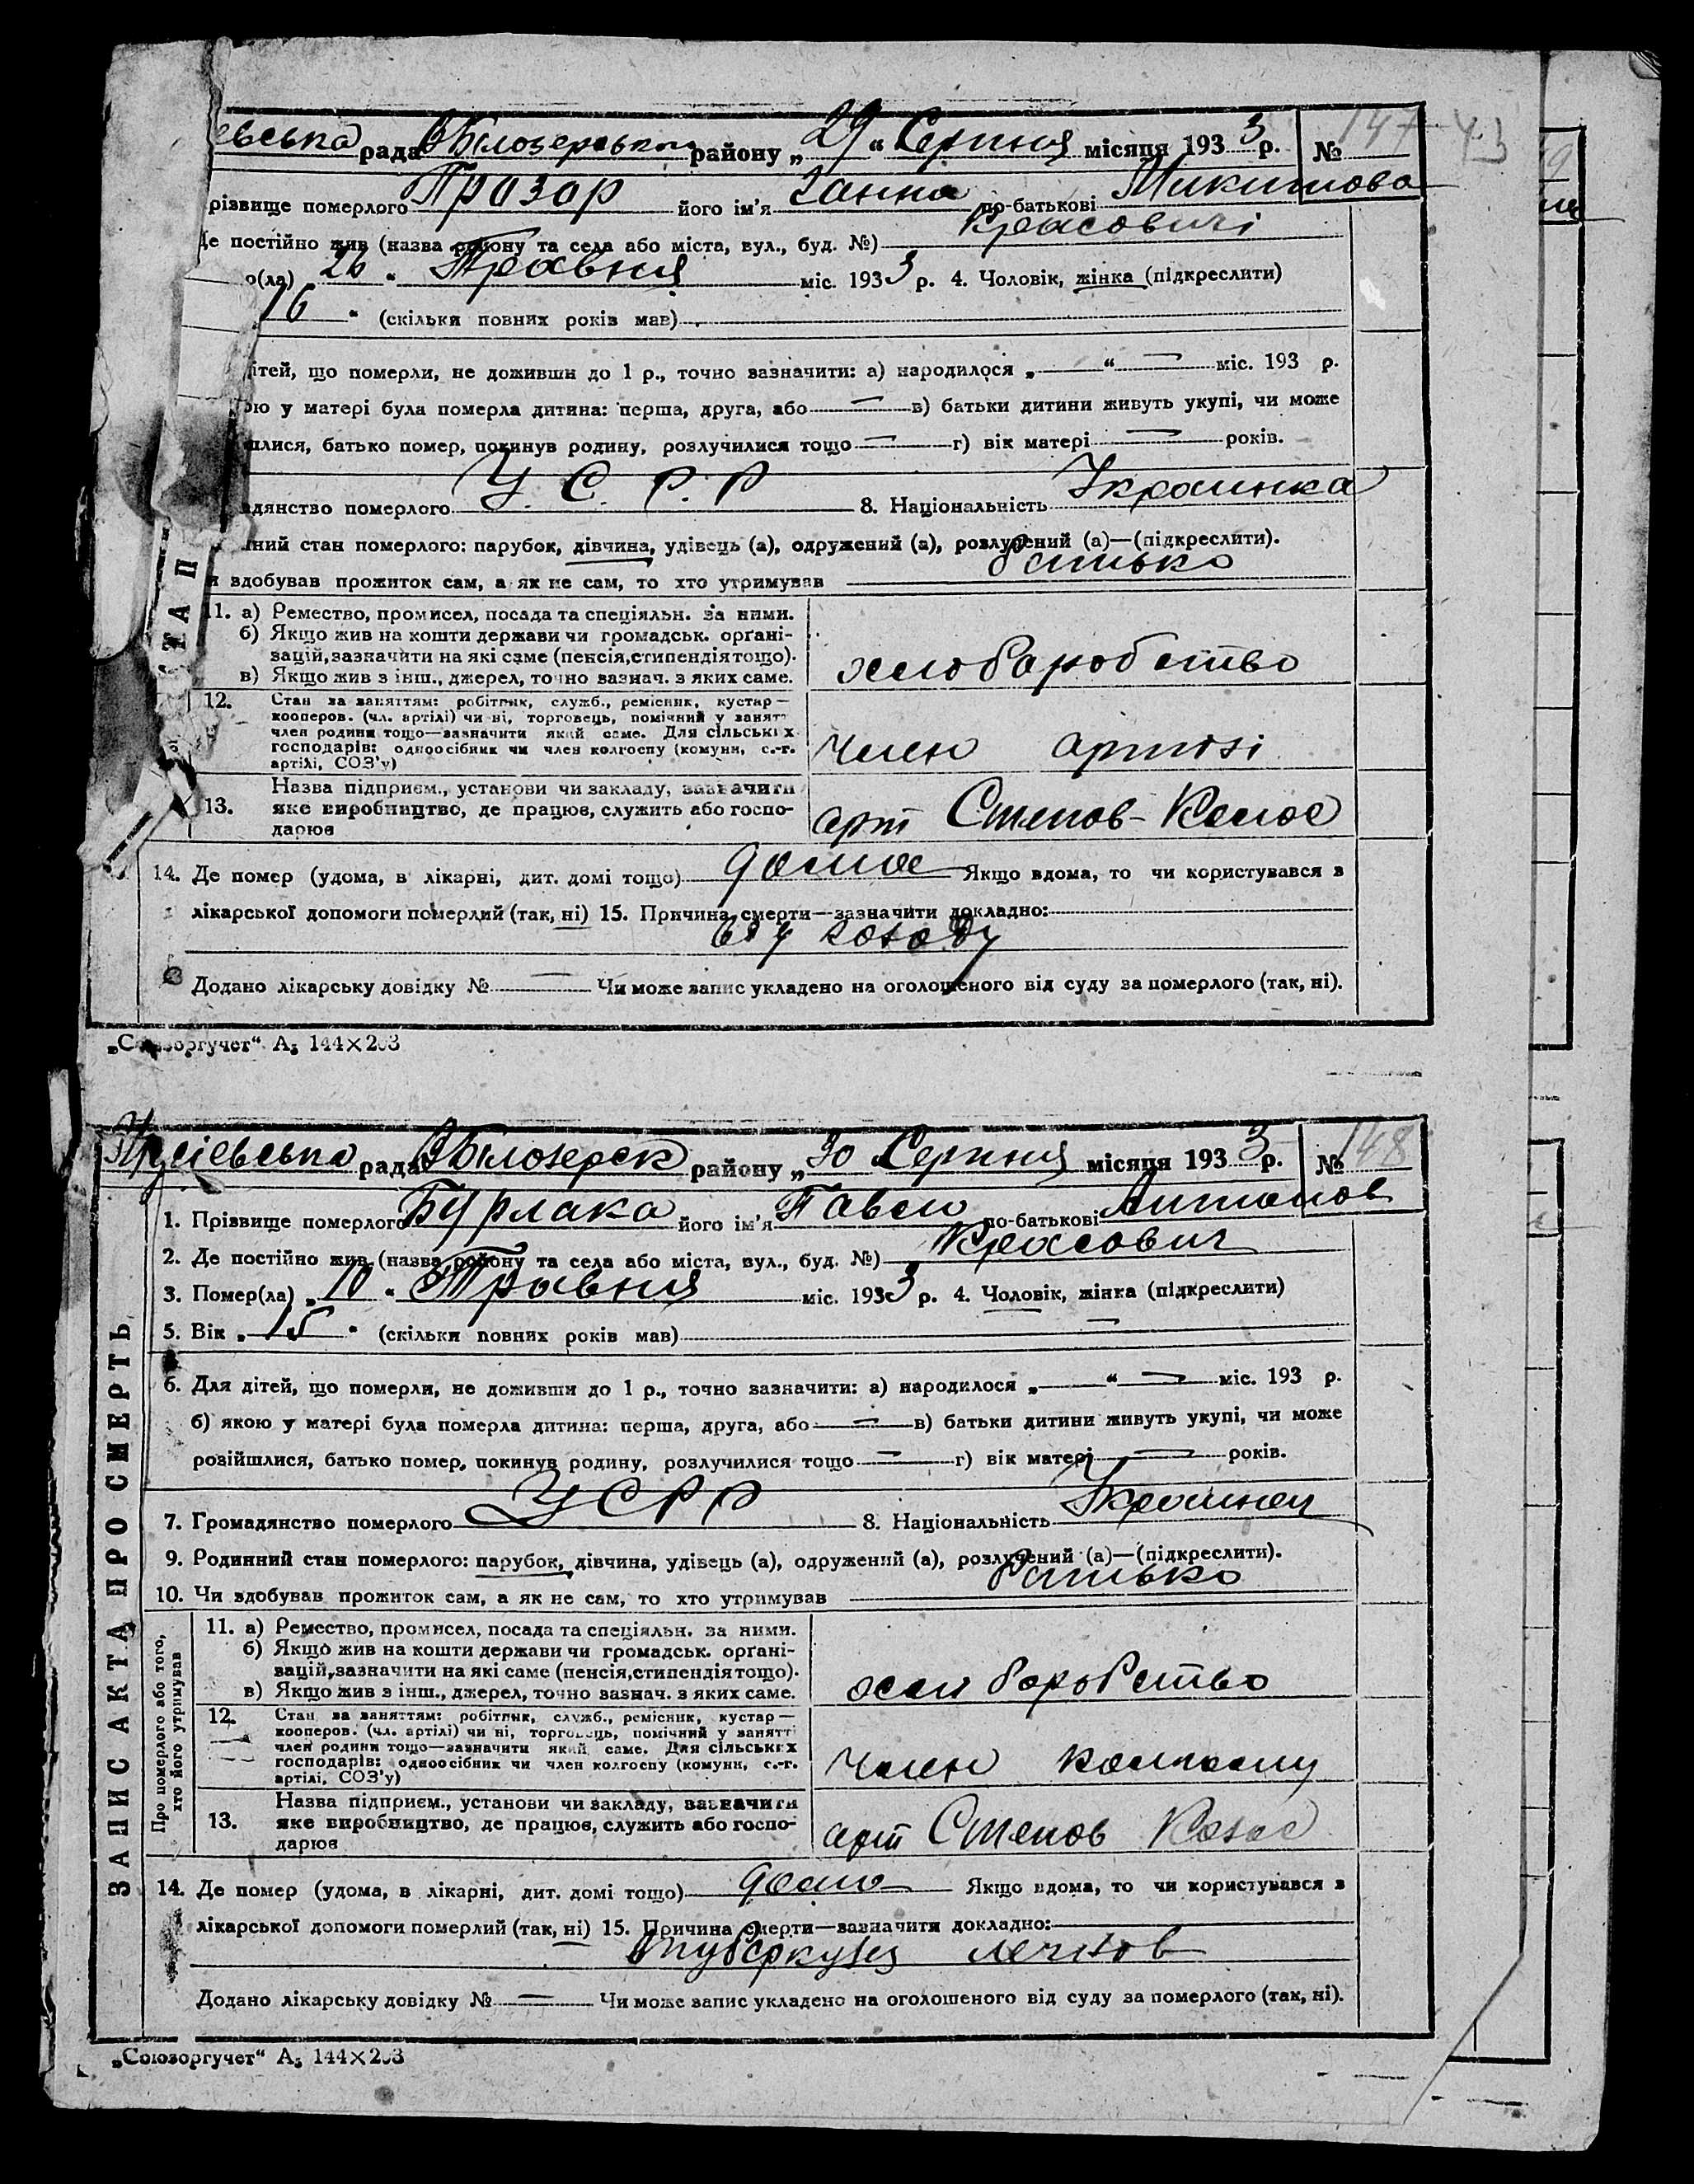 евська рада В Білозерськ району „29“ Серпня місяця 1933 р. № 147
різвище померлого Прозор його ім'я Ганна по-батькові Микитова
Де постійно жив (назва району та села або міста, вул., буд. №) Красовичі
о(ла) 26 " Травня міс. 1933 р. 4. Чоловік, жінка (підкреслити)
16 " (скільки повних років мав)
ітей, що померли, не доживши до 1 р., точно зазначити: а) народилося „ — “ — міс. 193 р.
ою у матері була померла дитина: перша, друга, або — в) батьки дитини живуть укупі, чи може
шлися, батько помер, покинув родину, розлучилися тощо — г) вік матері — років.
адянство померлого У. С. Р. Р 8. Національність Украинка
нний стан померлого: парубок, дівчина, удівець (а), одружений (а), розлучений (а)—(підкреслити).
и здобував прожиток сам, а як не сам, то хто утримував батько
11. а) Ремество, промисел, посада та спеціяльн. за ними.
б) Якщо жив на кошти держави чи громадськ. орґані-
зацій, зазначити на які саме (пенсія, стипендія тощо).
в) Якщо жив з інш., джерел, точно зазнач. з яких саме.
хлоборобство
12. Стан за заняттям: робітник, служб., ремісник, кустар—
кооперов. (чл. артілі) чи ні, торговець, помічний у занятт
член родини тощо—зазначити який саме. Для сільських
господарів: одноосібник чи член колгоспу (комуни, с.-г.
артілі, СОЗ'у)
член артілі
13. Назва підприєм., установи чи закладу, зазначити
яке виробництво, де працює, служить або госпо-
дарює
арт Степов-Колос
14. Де помер (удома, в лікарні, дит. домі тощо) дома Якщо вдома, то чи користувався з
лікарської допомоги померлий (так, ні) 15. Причина смерти—зазначити докладно:
від голоду
Додано лікарську довідку № — Чи може запис укладено на оголошеного від суду за померлого (так, ні).
„Союзоргучет“ А₅ 144×203
рада В Білозерськ району „30 Серпня місяця 1933 р. № 148
1. Прізвище померлого Бурлака його ім'я Павло по-батькові Антонов
2. Де постійно жив (назва району та села або міста, вул., буд. №) Красович
3. Помер(ла) „10 " Травня міс. 1933 р. 4. Чоловік, жінка (підкреслити)
5. Вік „ 15 " (скільки повних років мав) —
6. Для дітей, що померли, не доживши до 1 р., точно зазначити: а) народилося „ — “ — міс. 193 р.
б) якою у матері була померла дитина: перша, друга, або — в) батьки дитини живуть укупі, чи може
розійшлися, батько помер, покинув родину, розлучилися тощо — г) вік матері — років.
7. Громадянство померлого УСРР 8. Національність Украинец
9. Родинний стан померлого: парубок, дівчина, удівець (а), одружений (а), розлучений (а)—(підкреслити).
10. Чи здобував прожиток сам, а як не сам, то хто утримував батько
11. а) Ремество, промисел, посада та спеціяльн. за ними.
б) Якщо жив на кошти держави чи громадськ. орґані-
зацій, зазначити на які саме (пенсія, стипендія тощо).
в) Якщо жив з інш., джерел, точно зазнач. з яких саме.
12. Стан за заняттям: робітник, служб., ремісник, кустар—
кооперов. (чл. артілі) чи ні, торговець, помічний у занятті
член родини тощо—зазначити який саме. Для сільських
господарів: одноосібник чи член колгоспу (комуни, с.-г.
артілі, СОЗ'у)
член
13. Назва підприєм., установи чи закладу, зазначити
яке виробництво, де працює, служить або госпо-
дарює
арт Степов Колос
14. Де помер (удома, в лікарні, дит. домі тощо) дома Якщо вдома, то чи користувався з
лікарської допомоги померлий (так, ні) 15. Причина смерти—зазначити докладно:
туберкулз легков
Додано лікарську довідку № — Чи може запис укладено на оголошеного від суду за померлого (так, ні).
„Союзоргучет“ А₅ 144×203
ЗАПИС АКТА ПРО СМЕРТЬ
Про померлого або того,
хто його утримував